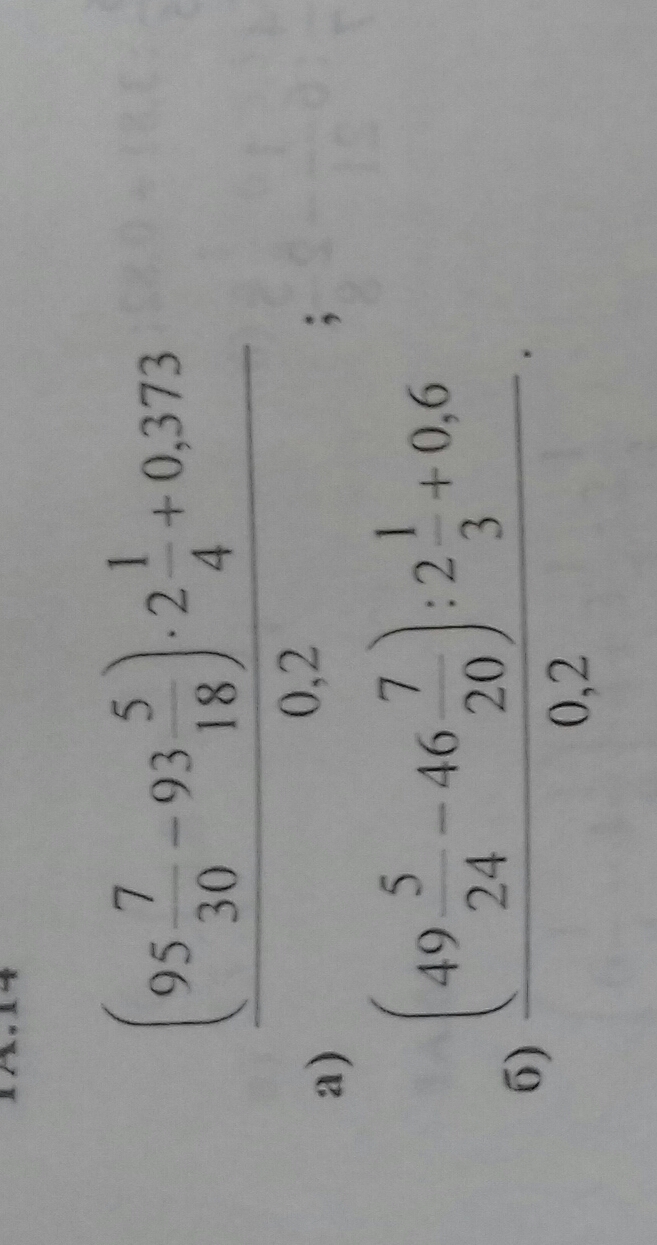 1А.14
а) (95 7/30 − 93 5/18) · 2 1/4 + 0,373
0,2 ;
б) (49 5/24 − 46 7/20) : 2 1/3 + 0,6
0,2 .